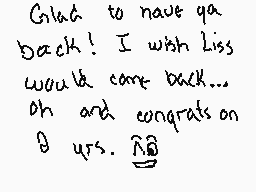 Glad to have ya
back! I wish Liss
would come back...
oh and congrats on
yrs.